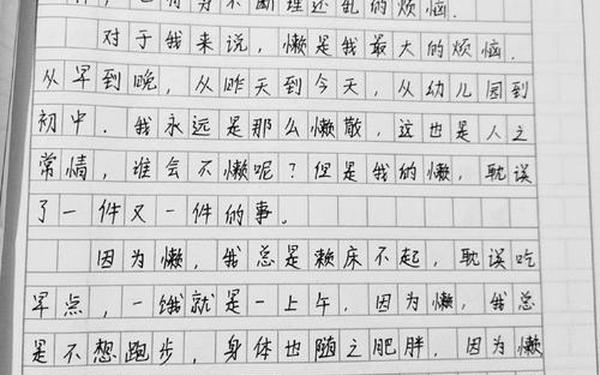 剪不断理还乱的烦恼.
对于我来说，懒是我最大的烦恼.
从早到晚，从昨天到今天，从幼儿园到
初中.我永远是那么懒散，这也是人之
常情，谁会不懒呢？但是我的懒，耽误
了一件又一件的事。
因为懒，我总是赖床不起，耽误吃
早点，一饿就是一上午，因为懒，我总
是不想跑步，身体也随之肥胖，因为懒